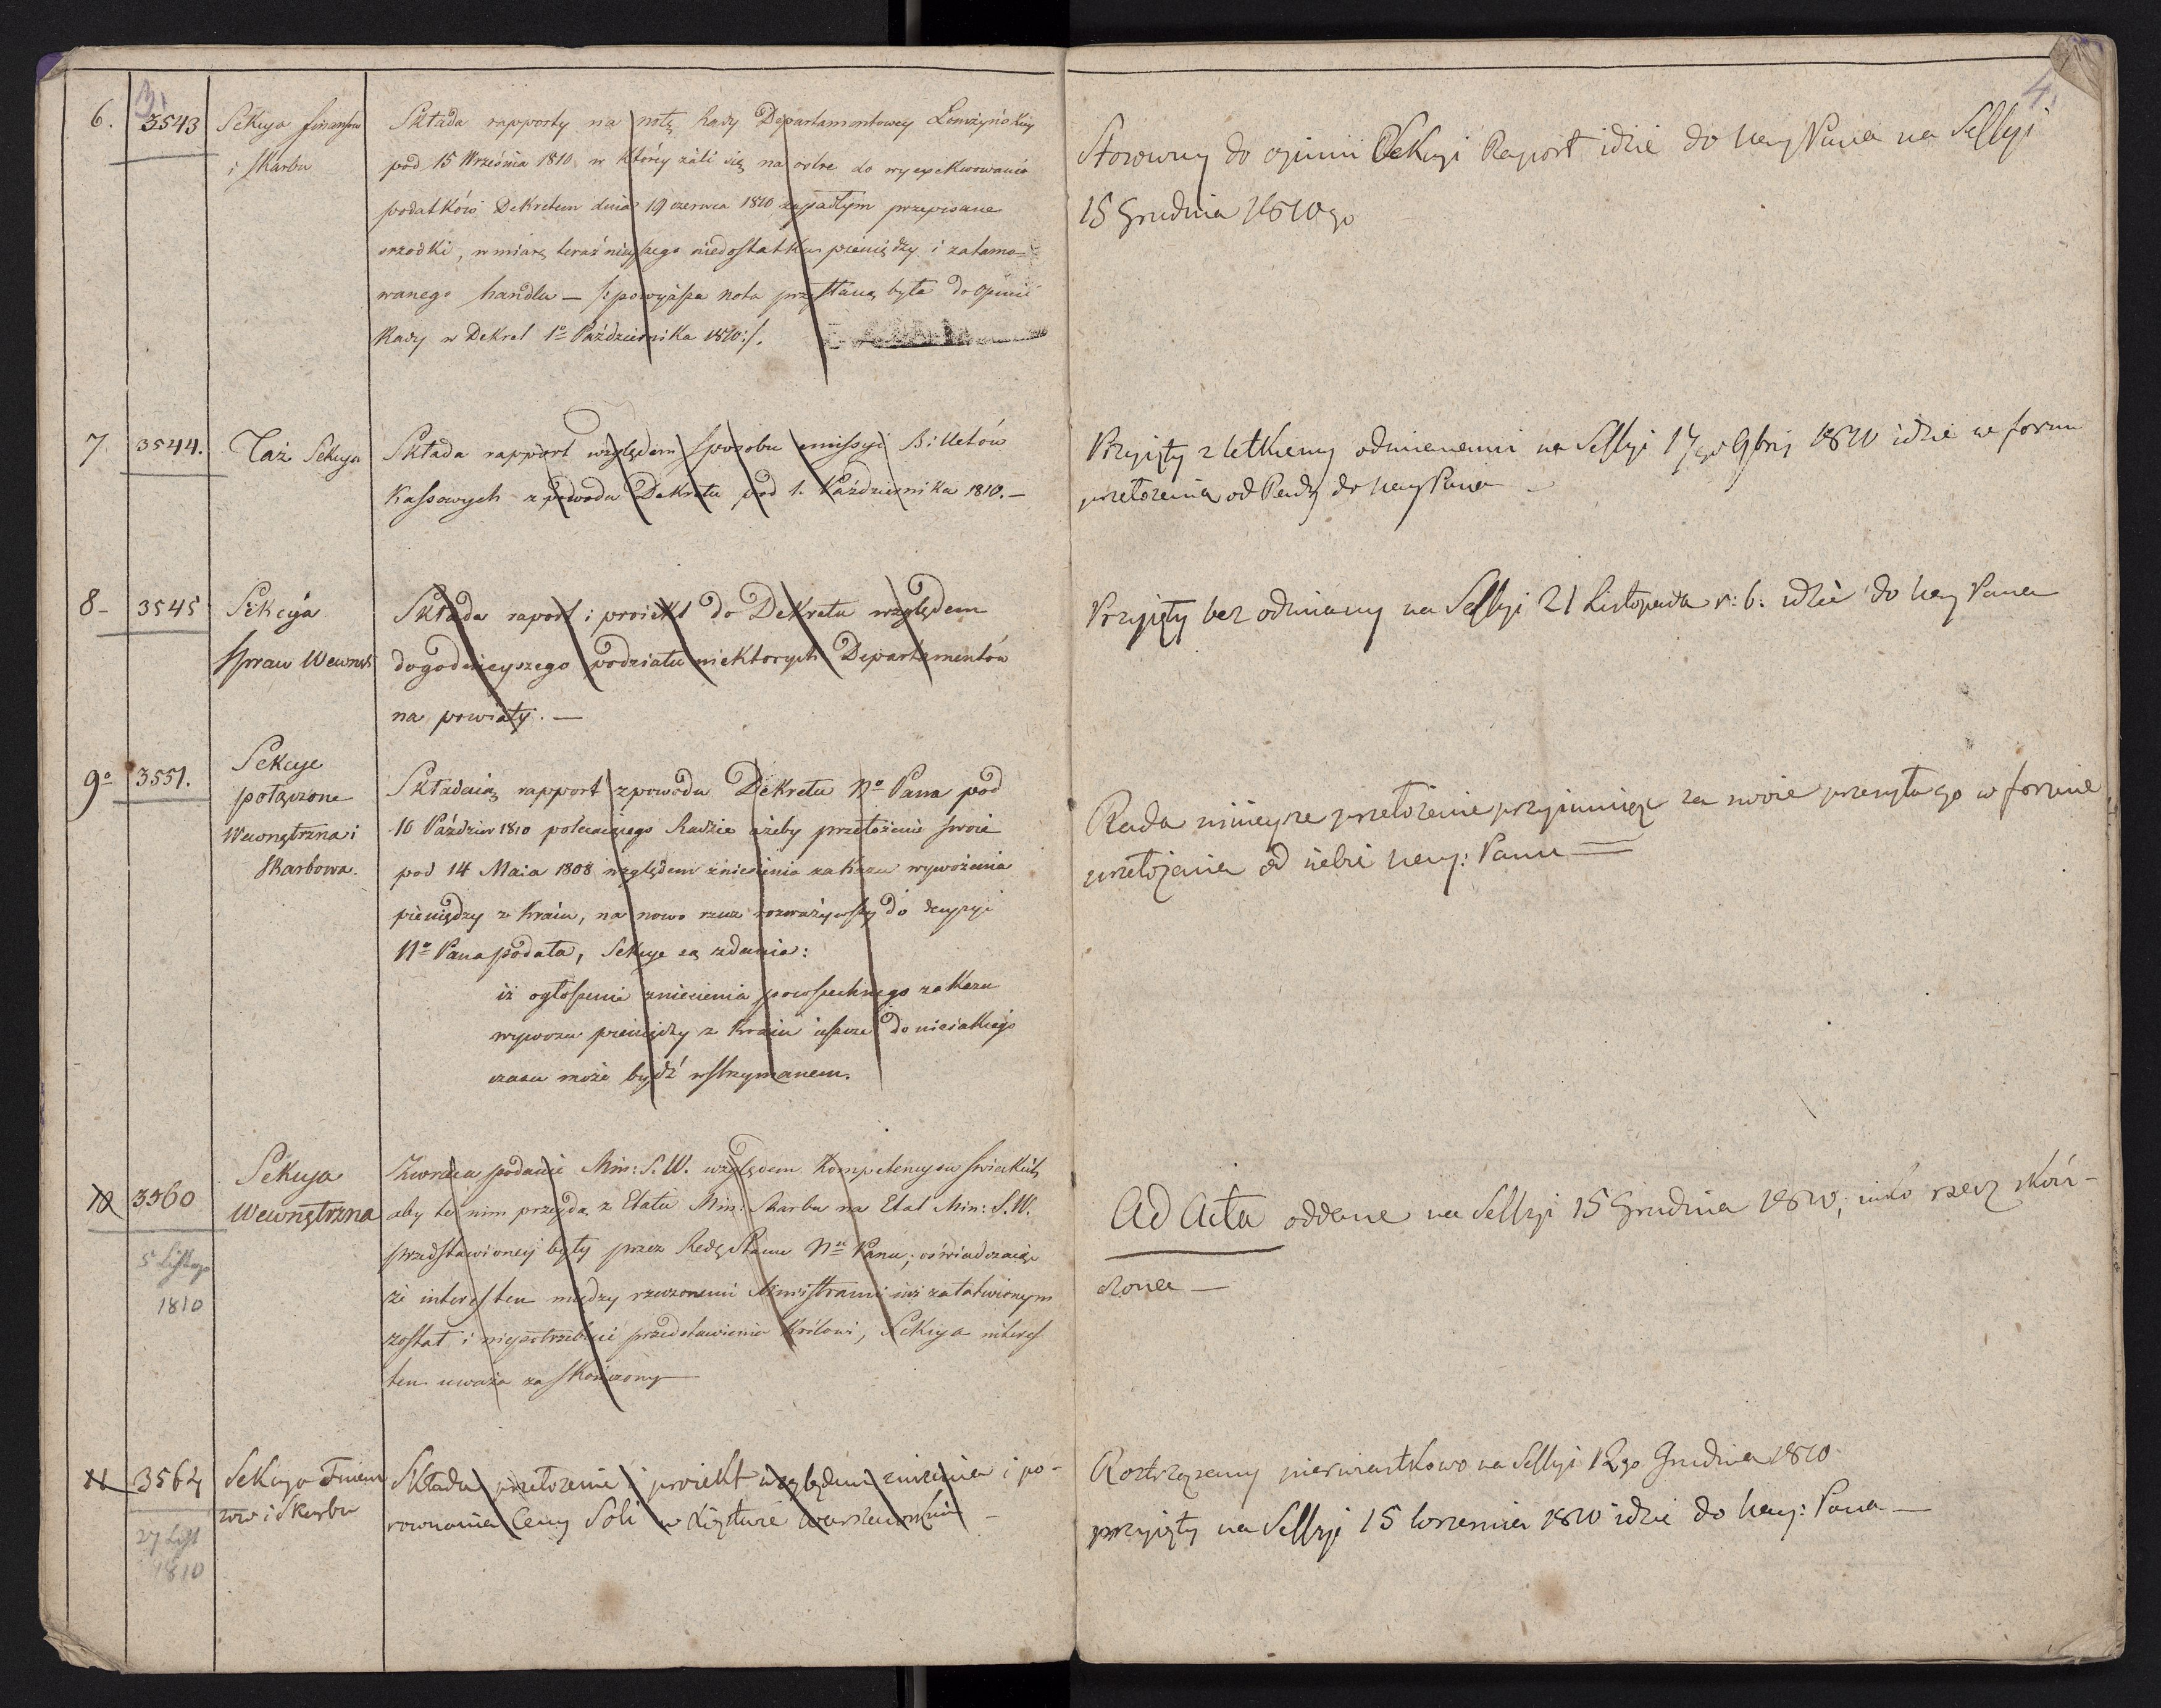 3.
6. 3543 Sekcya finansów
i Skarbu
Składa rapporty na notę Rady Departamentowey Łomżyńskiey
pod 15 Września 1810, w którey żali się na ostre do wyexekwowania
podatków Dekretem dnia 19 czerwca 1810 zapadłym przepisane
srzodki, w miarę teraźnieyszego niedostatku pieniędzy i zatamo-
wanego handlu — powyższa nota przesłaną była do Opinii
Rady w Dekret 1o Października 1810:/.
7 3544. Taż Sekcya
Składa rapport względem sposobu emissyi Billetów
Kassowych z powodu Dekretu pod 1. Października 1810. —
8 - 3545 Sekcya
Spraw Wewnęt
Składa raport i proiekt do Dekretu względem
dogodnieyszego podziału niektorych Departamentów
na powiaty. —
9o 3551. Sekcye
połączone
Wewnętrzna i
Skarbowa.
Składaią rapport z powodu Dekretu No Pana pod
16 Paździer 1810 polecaiącego Radzie ażeby przełożenie swoie
pod 14 Maia 1808 względem zniesienia zakazu wywożenia
pieniędzy z kraiu, na nowo rzecz rozważywszy do decyzyi
No Pana podała, Sekcye są zdania:
iż ogłoszenie zniesienia powszechnego zakazu
wywozu pieniędzy z kraiu ieszcze do nieiakiego
czasu może bydź wstrzymanem.
10 3560 Sekcya
Wewnętrzna
5 Listop
1810
Zwraca podanie Min: S. W. względem Kompetencyow Swieckich
aby te nim przeydą z Etatu Min: Skarbu na Etat Min: S. W.
przedstawioney były przez Radę Stanu No Panu; oświadczaiąc
że interes ten między rzeczonemi Ministrami iuż załatwionym
został i niepotrzebuie przedstawienia Królowi, Sekcya interes
ten uważa za skończony —
11 3564 Sekcya Finan
sow i Skarbu
27 List
1810
Składa przełożenie i proiekt względem zniżenia i po-
rownania Ceny Soli w Xięstwie Warszawskim —
4.
Stosowny do opinii Sekcyi Raport idzie do Nay Pana na Sessyi
15 Grudnia 1810go
Przyięty z letkiemi odmienami na Sessyi 17go 9bris 1810 idzie w formie
przełożenia od Rady do Nay Pana —
Przyięty bez odmiany na Sessyi 21 Listopada r: b: idzie do Nay Pana
Rada ninieysze przełożenie przyimuiąc za swoie przesyła go w formie
przełożenia od siebie Nay: Panu —
Ad Acta oddane na Sessyi 15 Grudnia 1810, iako rzecz skoń-
czona —
Roztrząsany pierwiastkowo na Sessyi 12go Grudnia 1810
przyięty na Sessyi 15 1810 idzie do Nay: Pana —